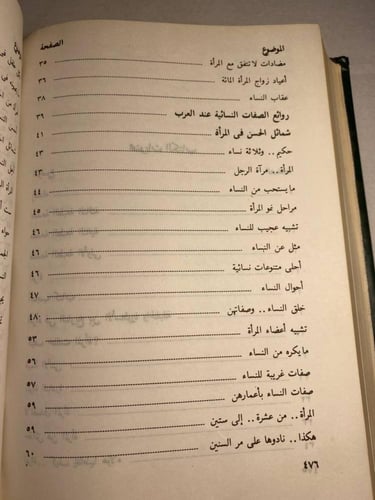 الموضوع الصفحة
مضادات لا تتفق مع المرأة ٣٥
أعياد زواج المرأة المائة ٣٦
عقاب النساء ٣٨
روائع الصفات النسائية عند العرب ٣٩
شمائل الحسن فى المرأة ٤١
حكيم.. وثلاثة نساء ٤٣
المرأة.. مرآة الرجل ٤٣
ما يستحب من النساء ٤٤
مراحل نمو المرأة ٤٥
تشبيه عجيب للنساء ٤٦
مثل عن النساء ٤٦
أحلى متنوعات نسائية ٤٦
أحوال النساء ٤٧
خلق النساء.. وصفاتهن ٤٨
تشبيه أعضاء المرأة ٥٣
ما يكره من النساء ٥٦
صفات غريبة للنساء ٥٧
صفات النساء بأعمارهن ٥٩
المرأة.. من عشرة.. إلى ستين ٥٩
هكذا.. نادوها على مر السنين ٦٠
٤٧٦